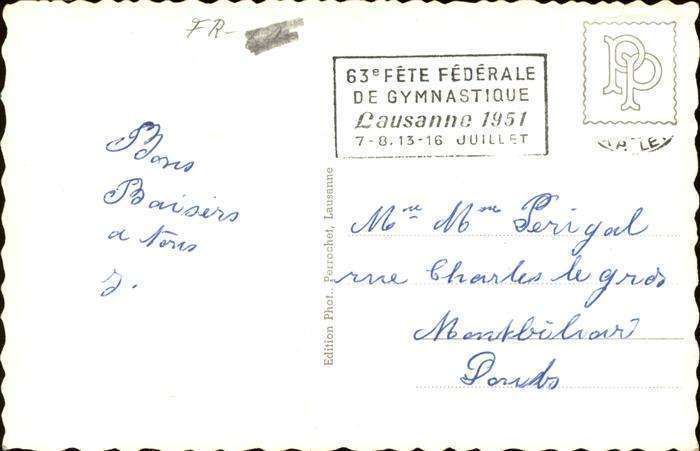 FR-
63e FÊTE FÉDÉRALE
DE GYMNASTIQUE
Lausanne 1951
7-8.13-16 JUILLET
PP
Bons
Baisers
a tous
Edition Phot. Perrochet, Lausanne
Mr Mme Périgal
rue Charles le gros
Montbéliard
Doubs